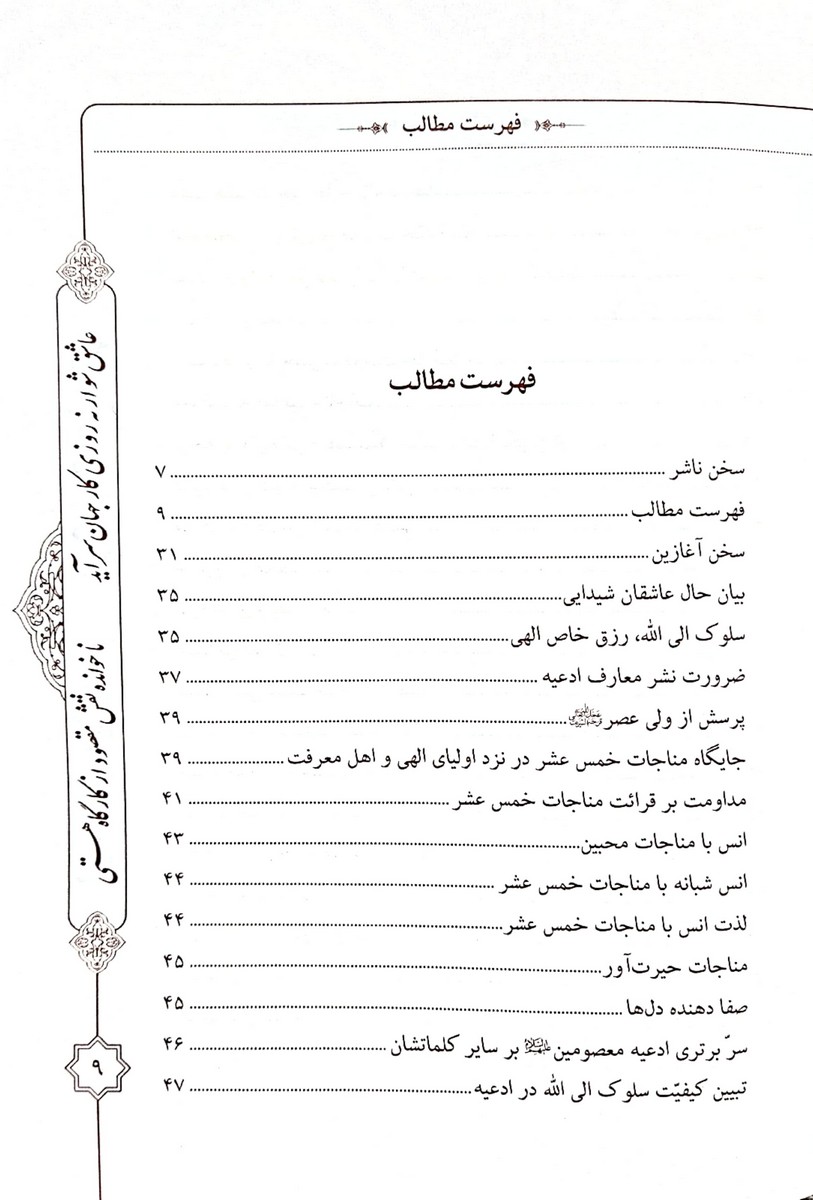 فهرست مطالب
فهرست مطالب
سخن ناشر ........ ۷
فهرست مطالب ........ ۹
سخن آغازین ........ ۳۱
بیان حال عاشقان شیدایی ........ ۳۵
سلوک الی الله، رزق خاص الهی ........ ۳۵
ضرورت نشر معارف ادعیه ........ ۳۷
پرسش از ولی عصر ........ ۳۹
جایگاه مناجات خمس عشر در نزد اولیای الهی و اهل معرفت ........ ۳۹
مداومت بر قرائت مناجات خمس عشر ........ ۴۱
انس با مناجات محبین ........ ۴۳
انس شبانه با مناجات خمس عشر ........ ۴۴
لذت انس با مناجات خمس عشر ........ ۴۴
مناجات حیرت‌آور ........ ۴۵
صفا دهنده دل‌ها ........ ۴۵
سرّ برتری ادعیه معصومین بر سایر کلماتشان ........ ۴۶
تبیین کیفیّت سلوک الی الله در ادعیه ........ ۴۷
عاشق شو ار نه روزی کار جهان سر آید
ناخوانده نقش مقصود از کارگاه هستی
۹